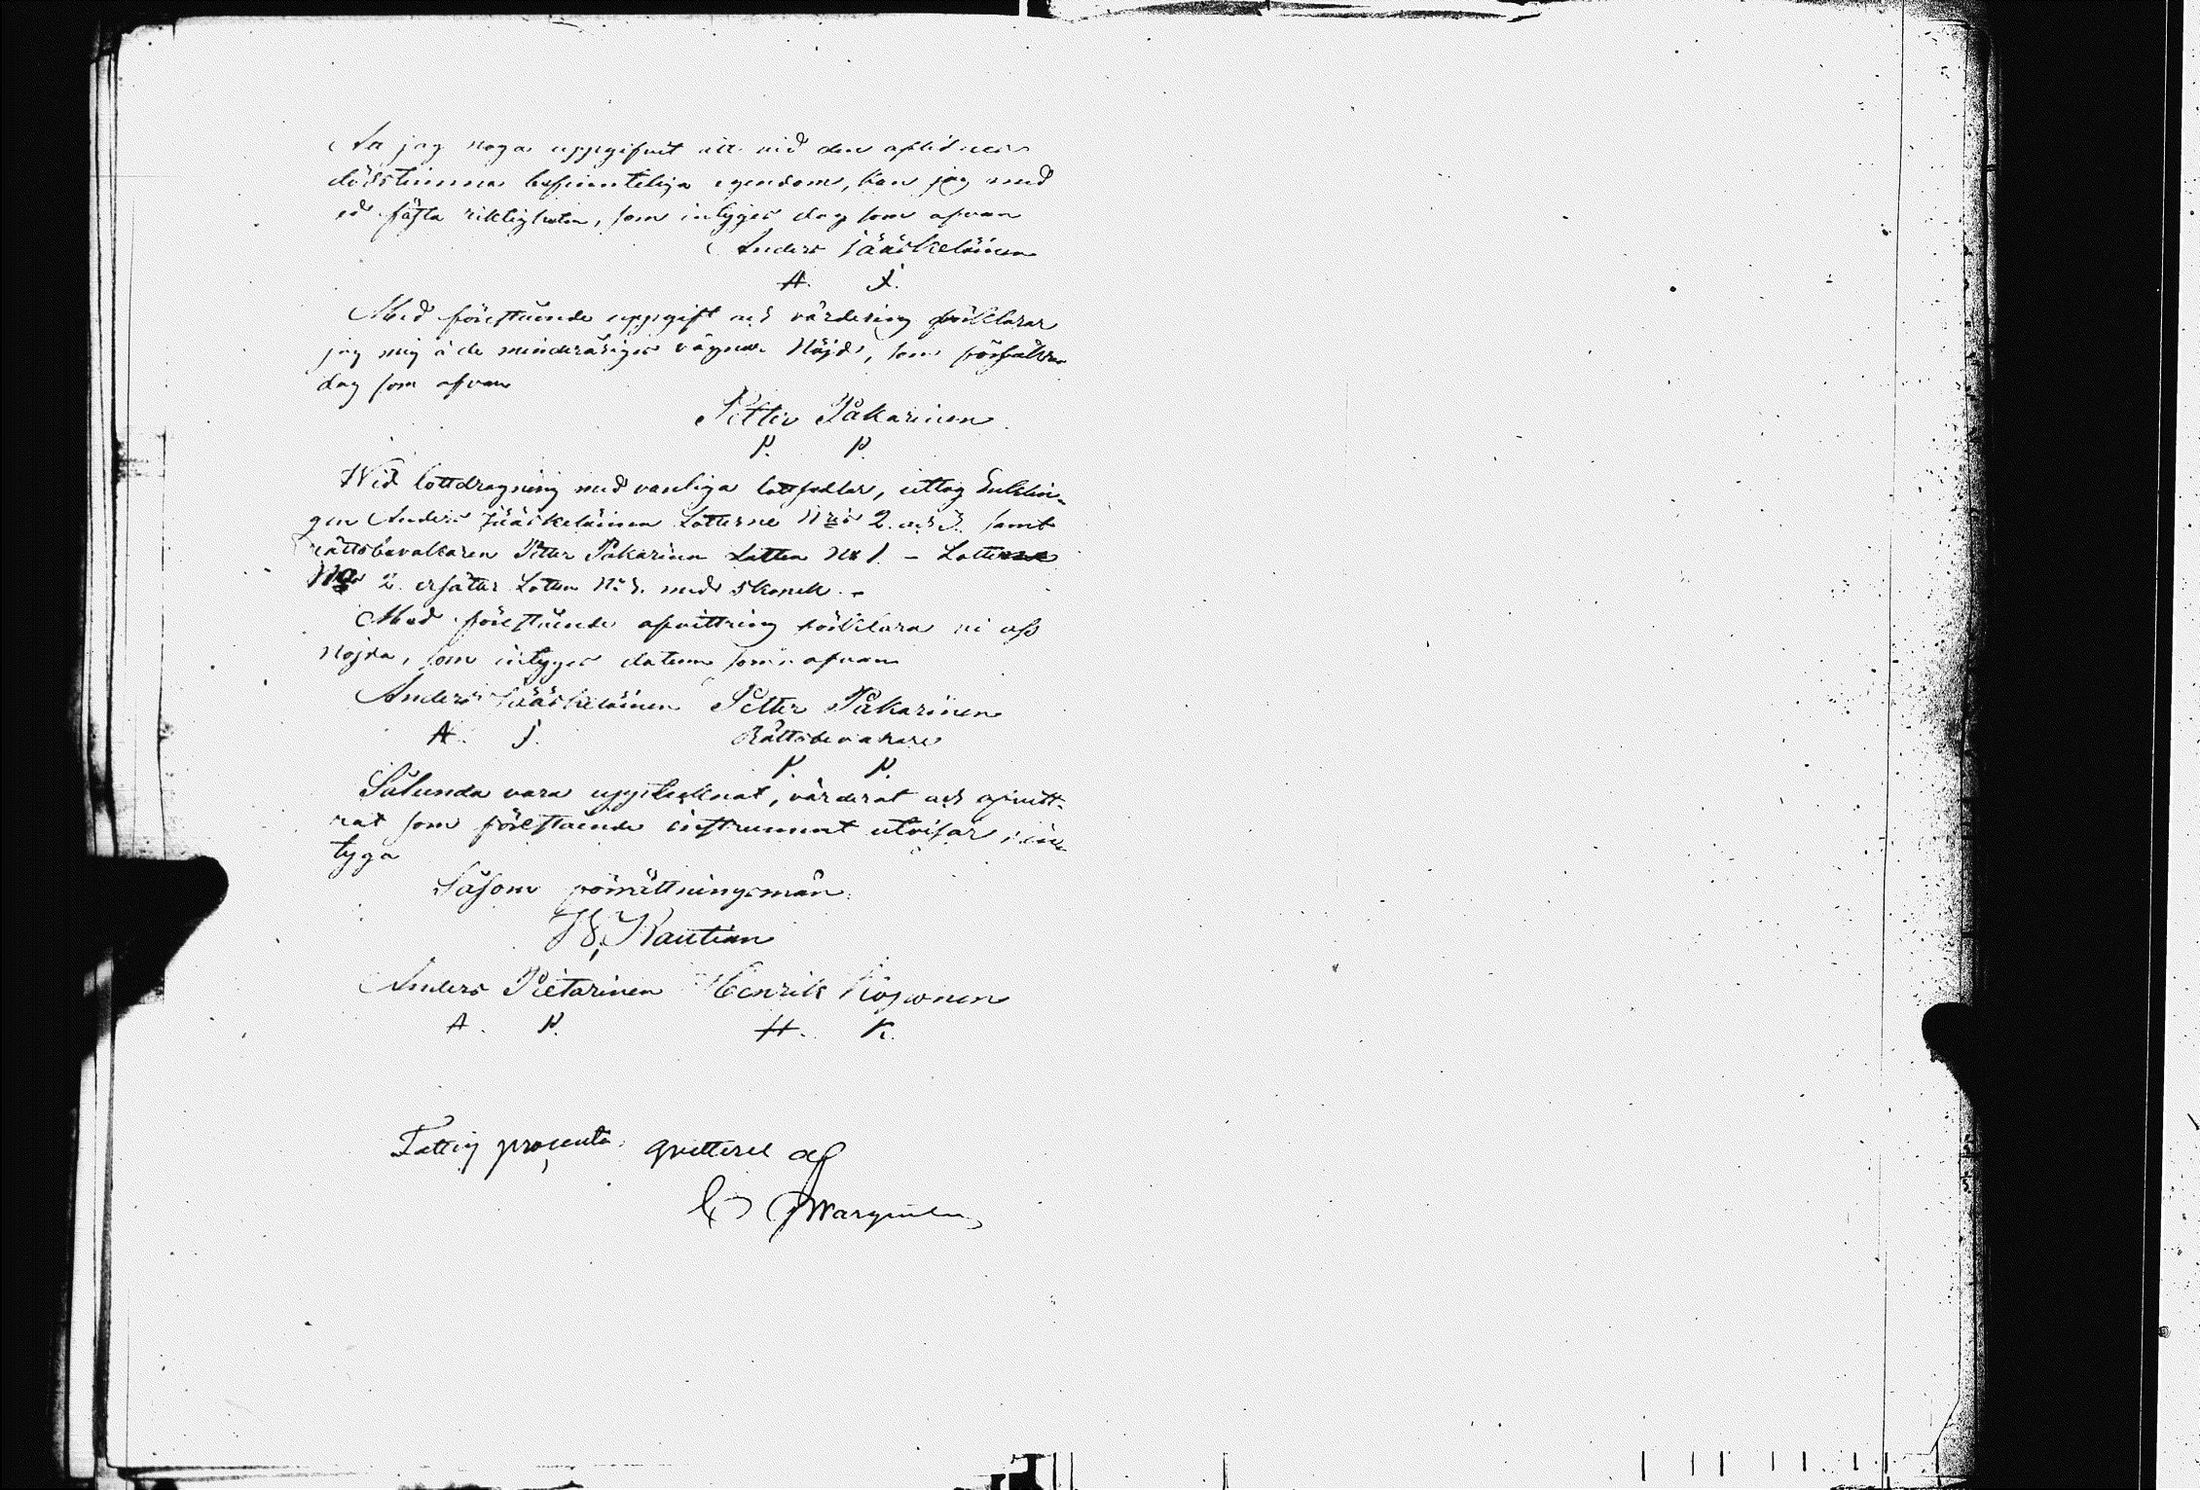 At jag noga uppgifvit all vid den aflidnes
dödstimma befinnteliga egendom, kan jag med
ed fästa riktigheten, som intyges dag som ofvan
Anders Jääskeläinen
A. J.
Med föreståénde uppgift och värdering förklarar
jag mig å de minderåriges vägnar nöjd, som försäkras
dag som ofvan
Petter Pakarinen
P. P.
Wid lottdragning med vanliga lottsedlar, uttog Enklin-
gen Anders Jääskeläinen Lotterne N:ris 2. och 3. samt
rättsbevakaren Petter Pakarinen Lotten N:o 1. – Lotten
N:o 2. ersätter Lotten N:o 3. med 5 kopek. –
Med föreståénde afvittring förklara vi oss
nöjda, som intyges datum som ofvan
Anders Jääskeläinen Petter Pakarinen
A. J. Rättsbevakare
P. P.
Sålunda vara uppteknat, värderat och afvitt-
rat som föreståénde instrument utvisar, in-
tyga
Såsom förrättningsmän:
Rautian
Anders Pietarinen Henrik Kosonen
A. P. H. K.
Fattig procenta qvitterel af